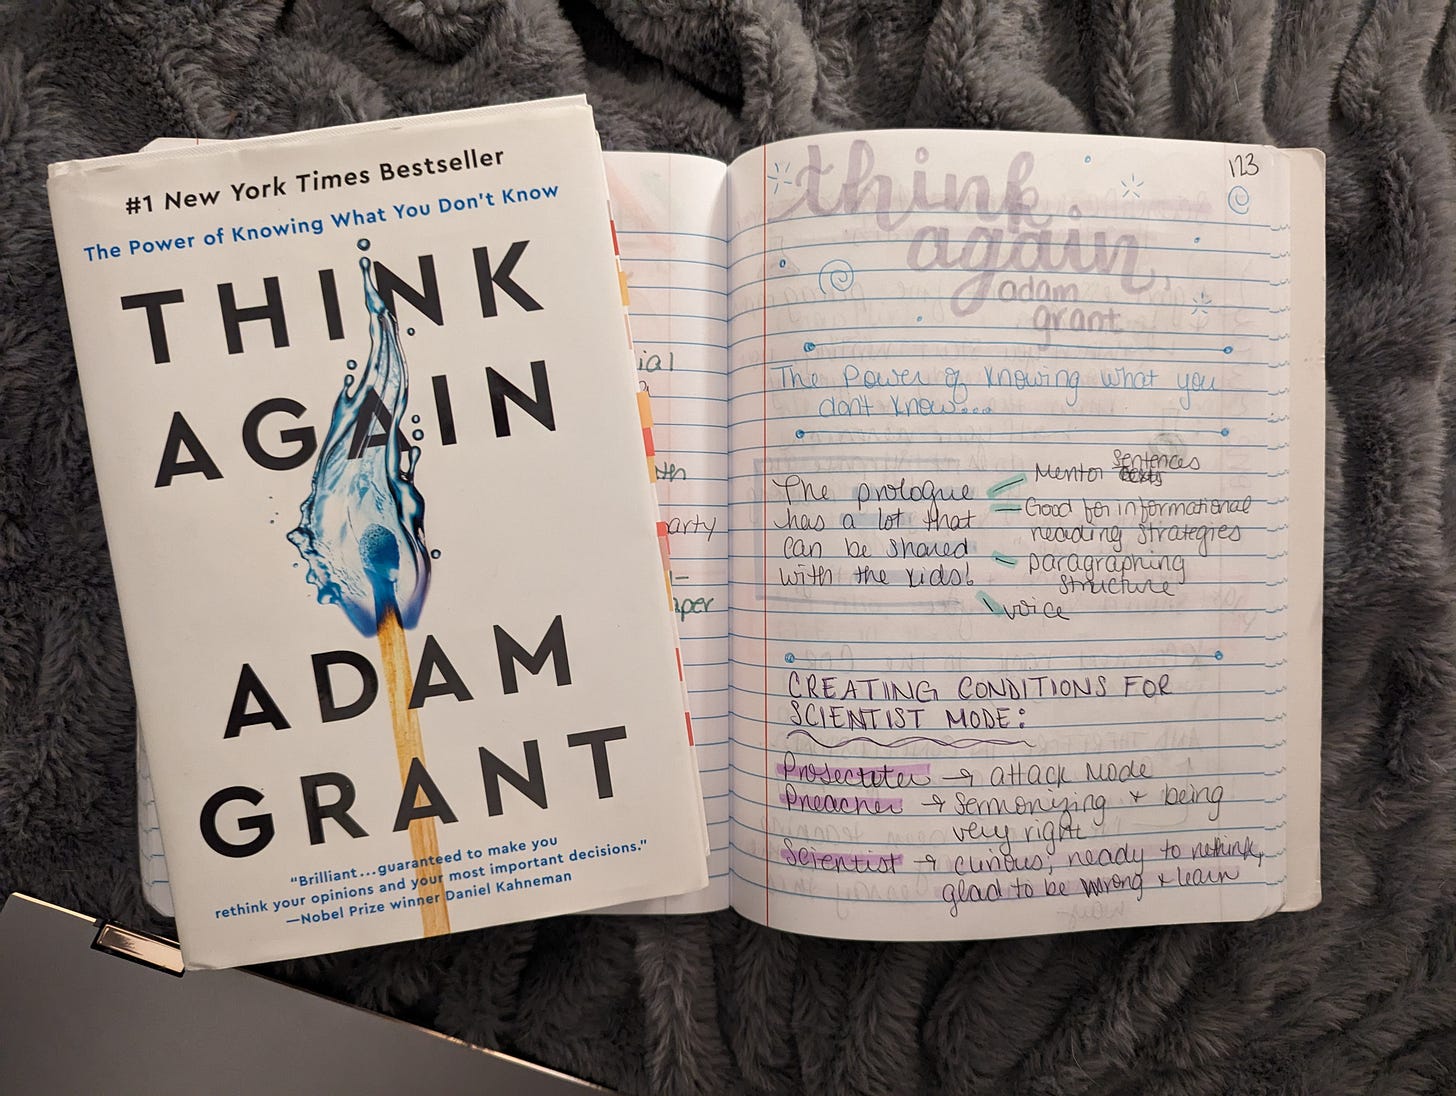 #1 New York Times Bestseller
The Power of Knowing What You Don't Know
THINK
AGAIN
ADAM
GRANT
"Brilliant...guaranteed to make you
rethink your opinions and your most important decisions."
—Nobel Prize winner Daniel Kahneman
ial
th
arty
aper
123
think
again,
adam
grant
The Power of Knowing what you
don't know...
The prologue
has a lot that
can be shared
with the kids!
Mentor Sentences
Good for informational
reading strategies
paragraphing
structure
voice
CREATING CONDITIONS FOR
SCIENTIST MODE:
Prosecuter → attack mode
Preacher → Sermonizing + being
very right
Scientist → curious; ready to rethink,
glad to be wrong + learn